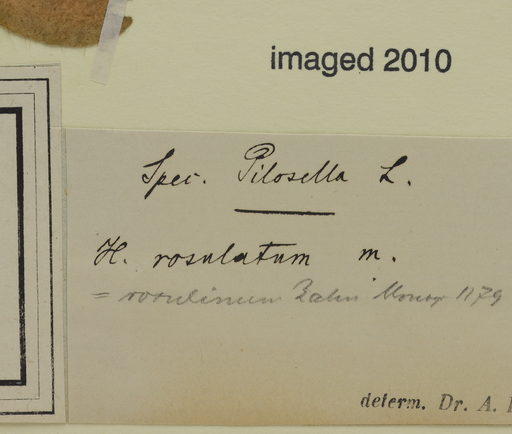 imaged 2010
Spec. Pilosella L.
H. rosulatum m.
= rosulinum Zahn Monogr 1179
determ. Dr. A.